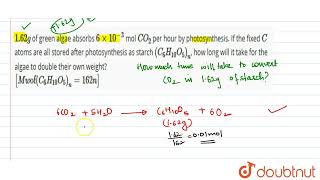 (1.62g)
1.62g of green algae absorbs 6 × 10⁻³ mol CO₂ per hour by photosynthesis. If the fixed C
atoms are all stored after photosynthesis as starch (C₆H₁₀O₅)ₙ, how long will it take for the
algae to double their own weight?
[Mwof(C₆H₁₀O₅)ₙ = 162n]
How much time will take to convert
CO₂ in 1.62g of starch?
6CO₂ + 5H₂O → C₆H₁₀O₅ + 6O₂
(1.62g)
1.62/162 = 0.01 mol
doubtnut